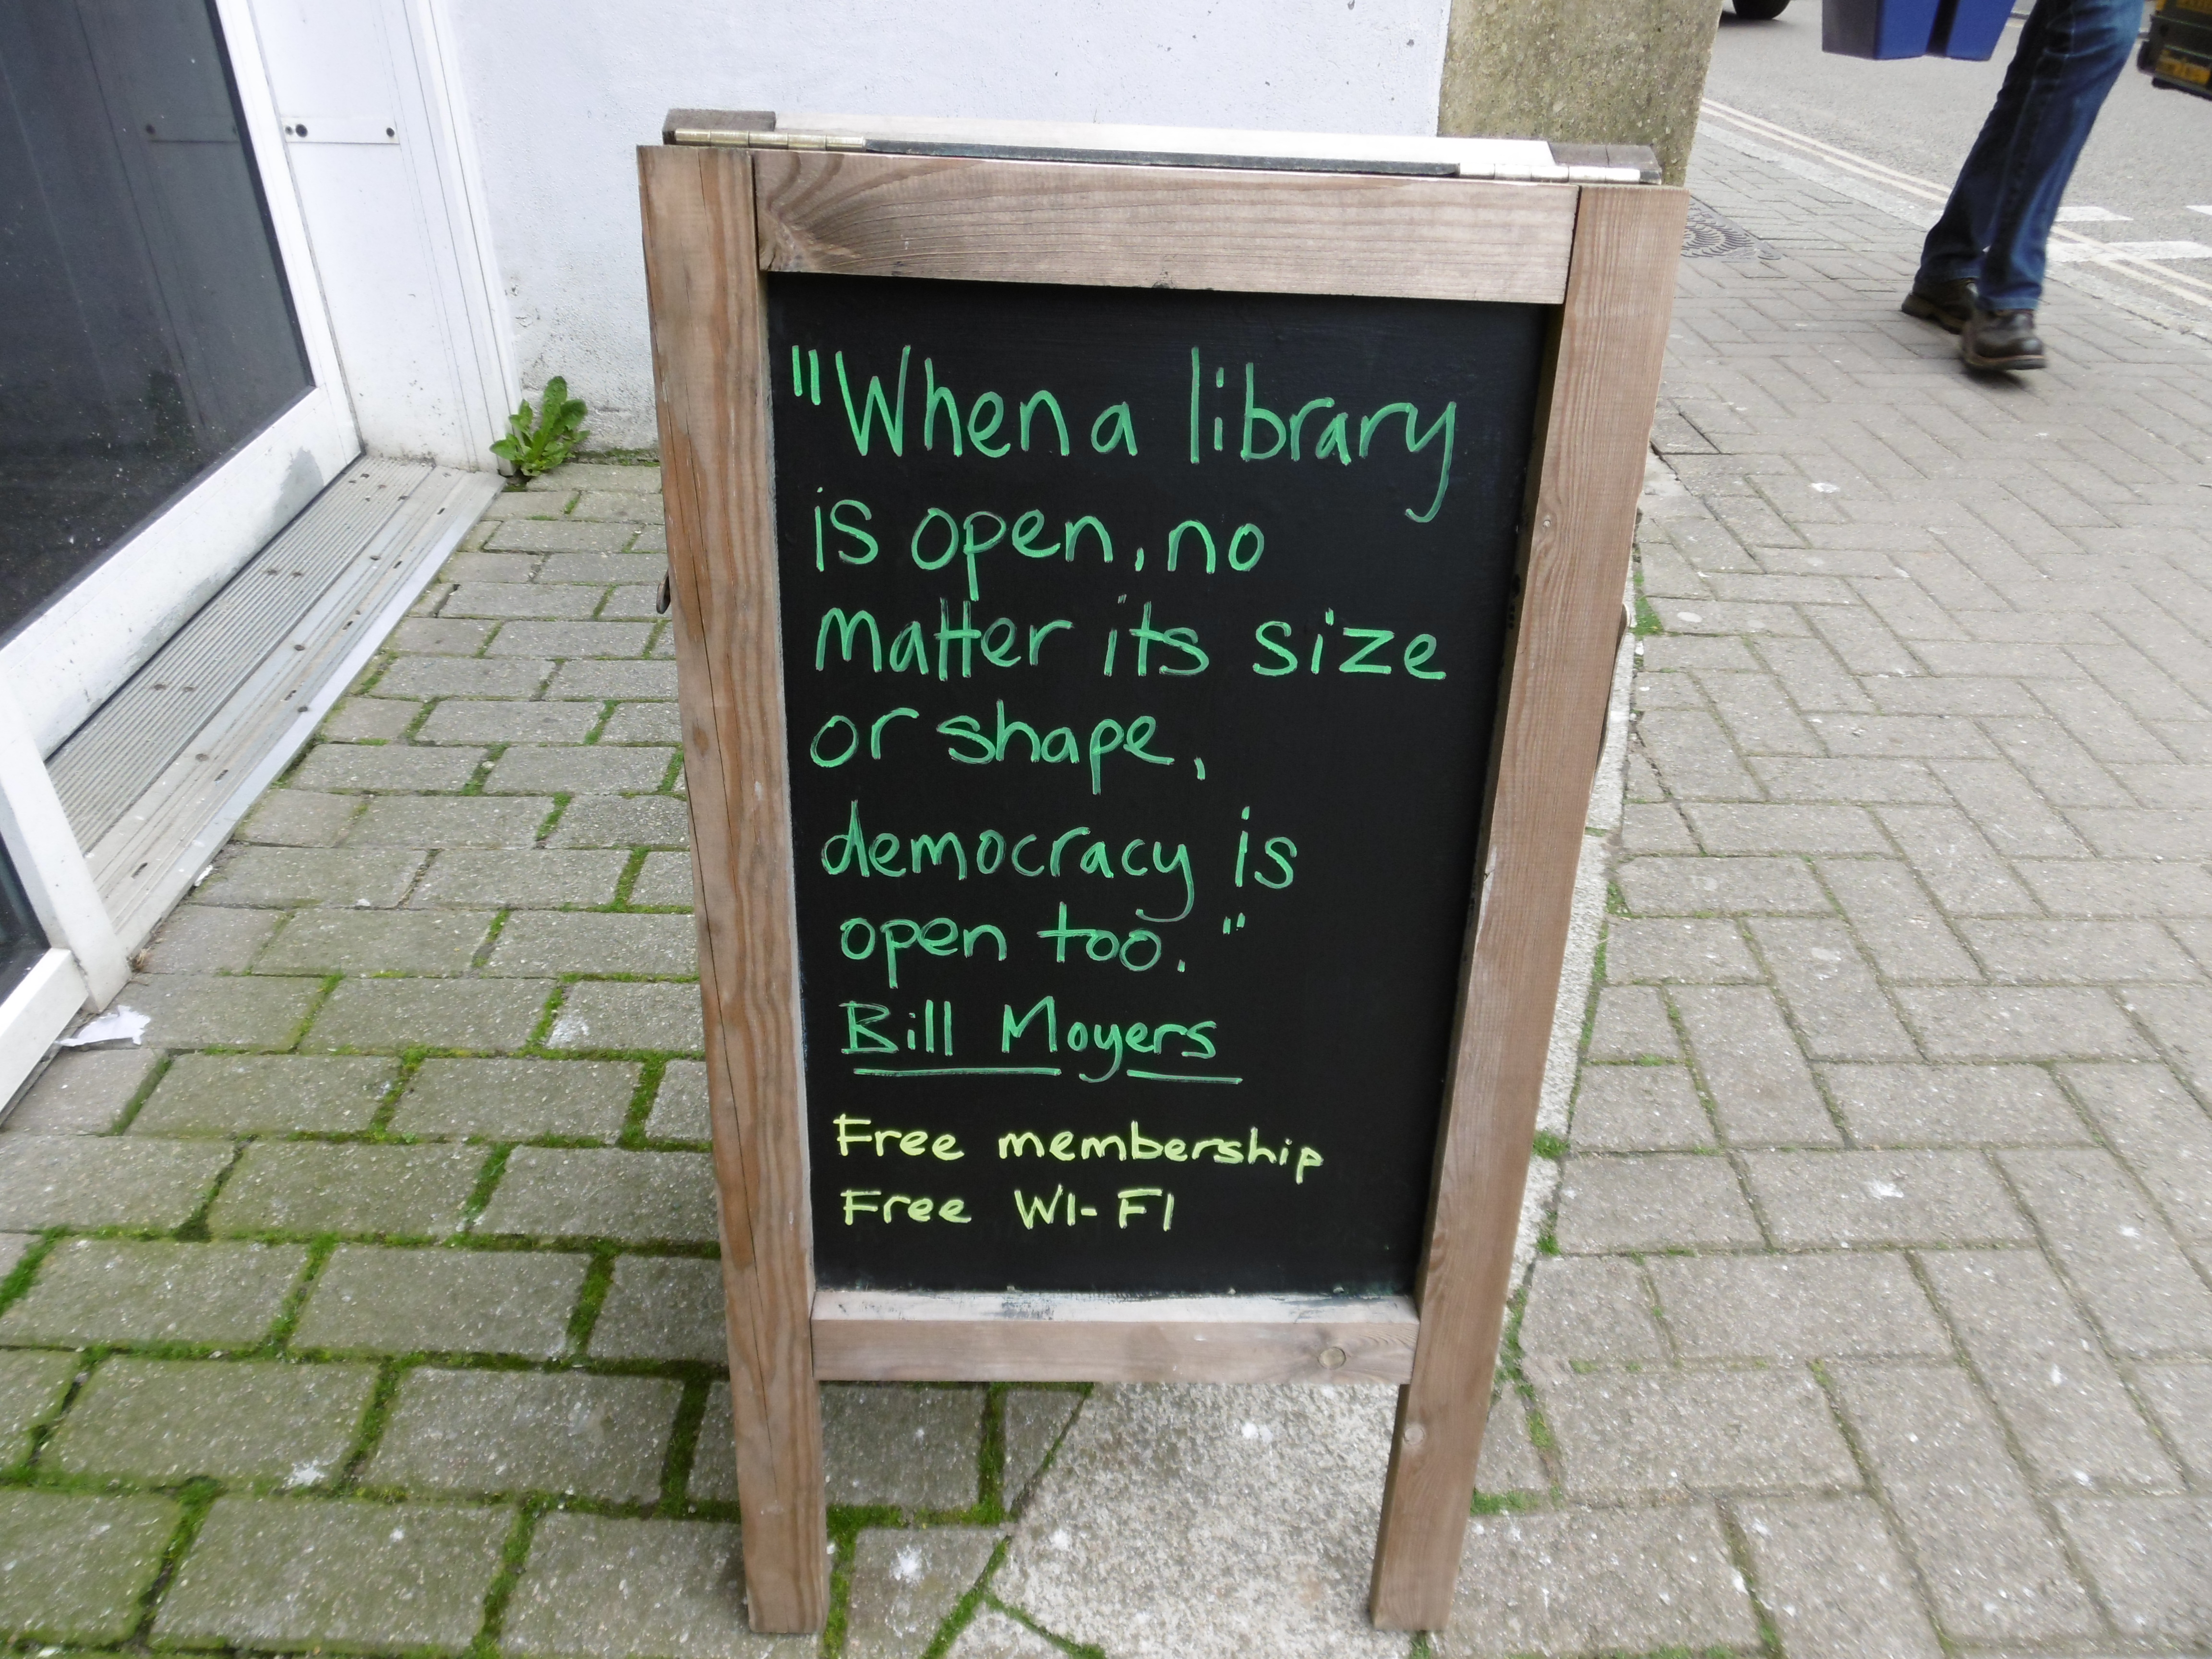 "When a library
is open, no
matter its size
or shape,
democracy is
open too."
Bill Moyers
Free membership
Free WI-FI